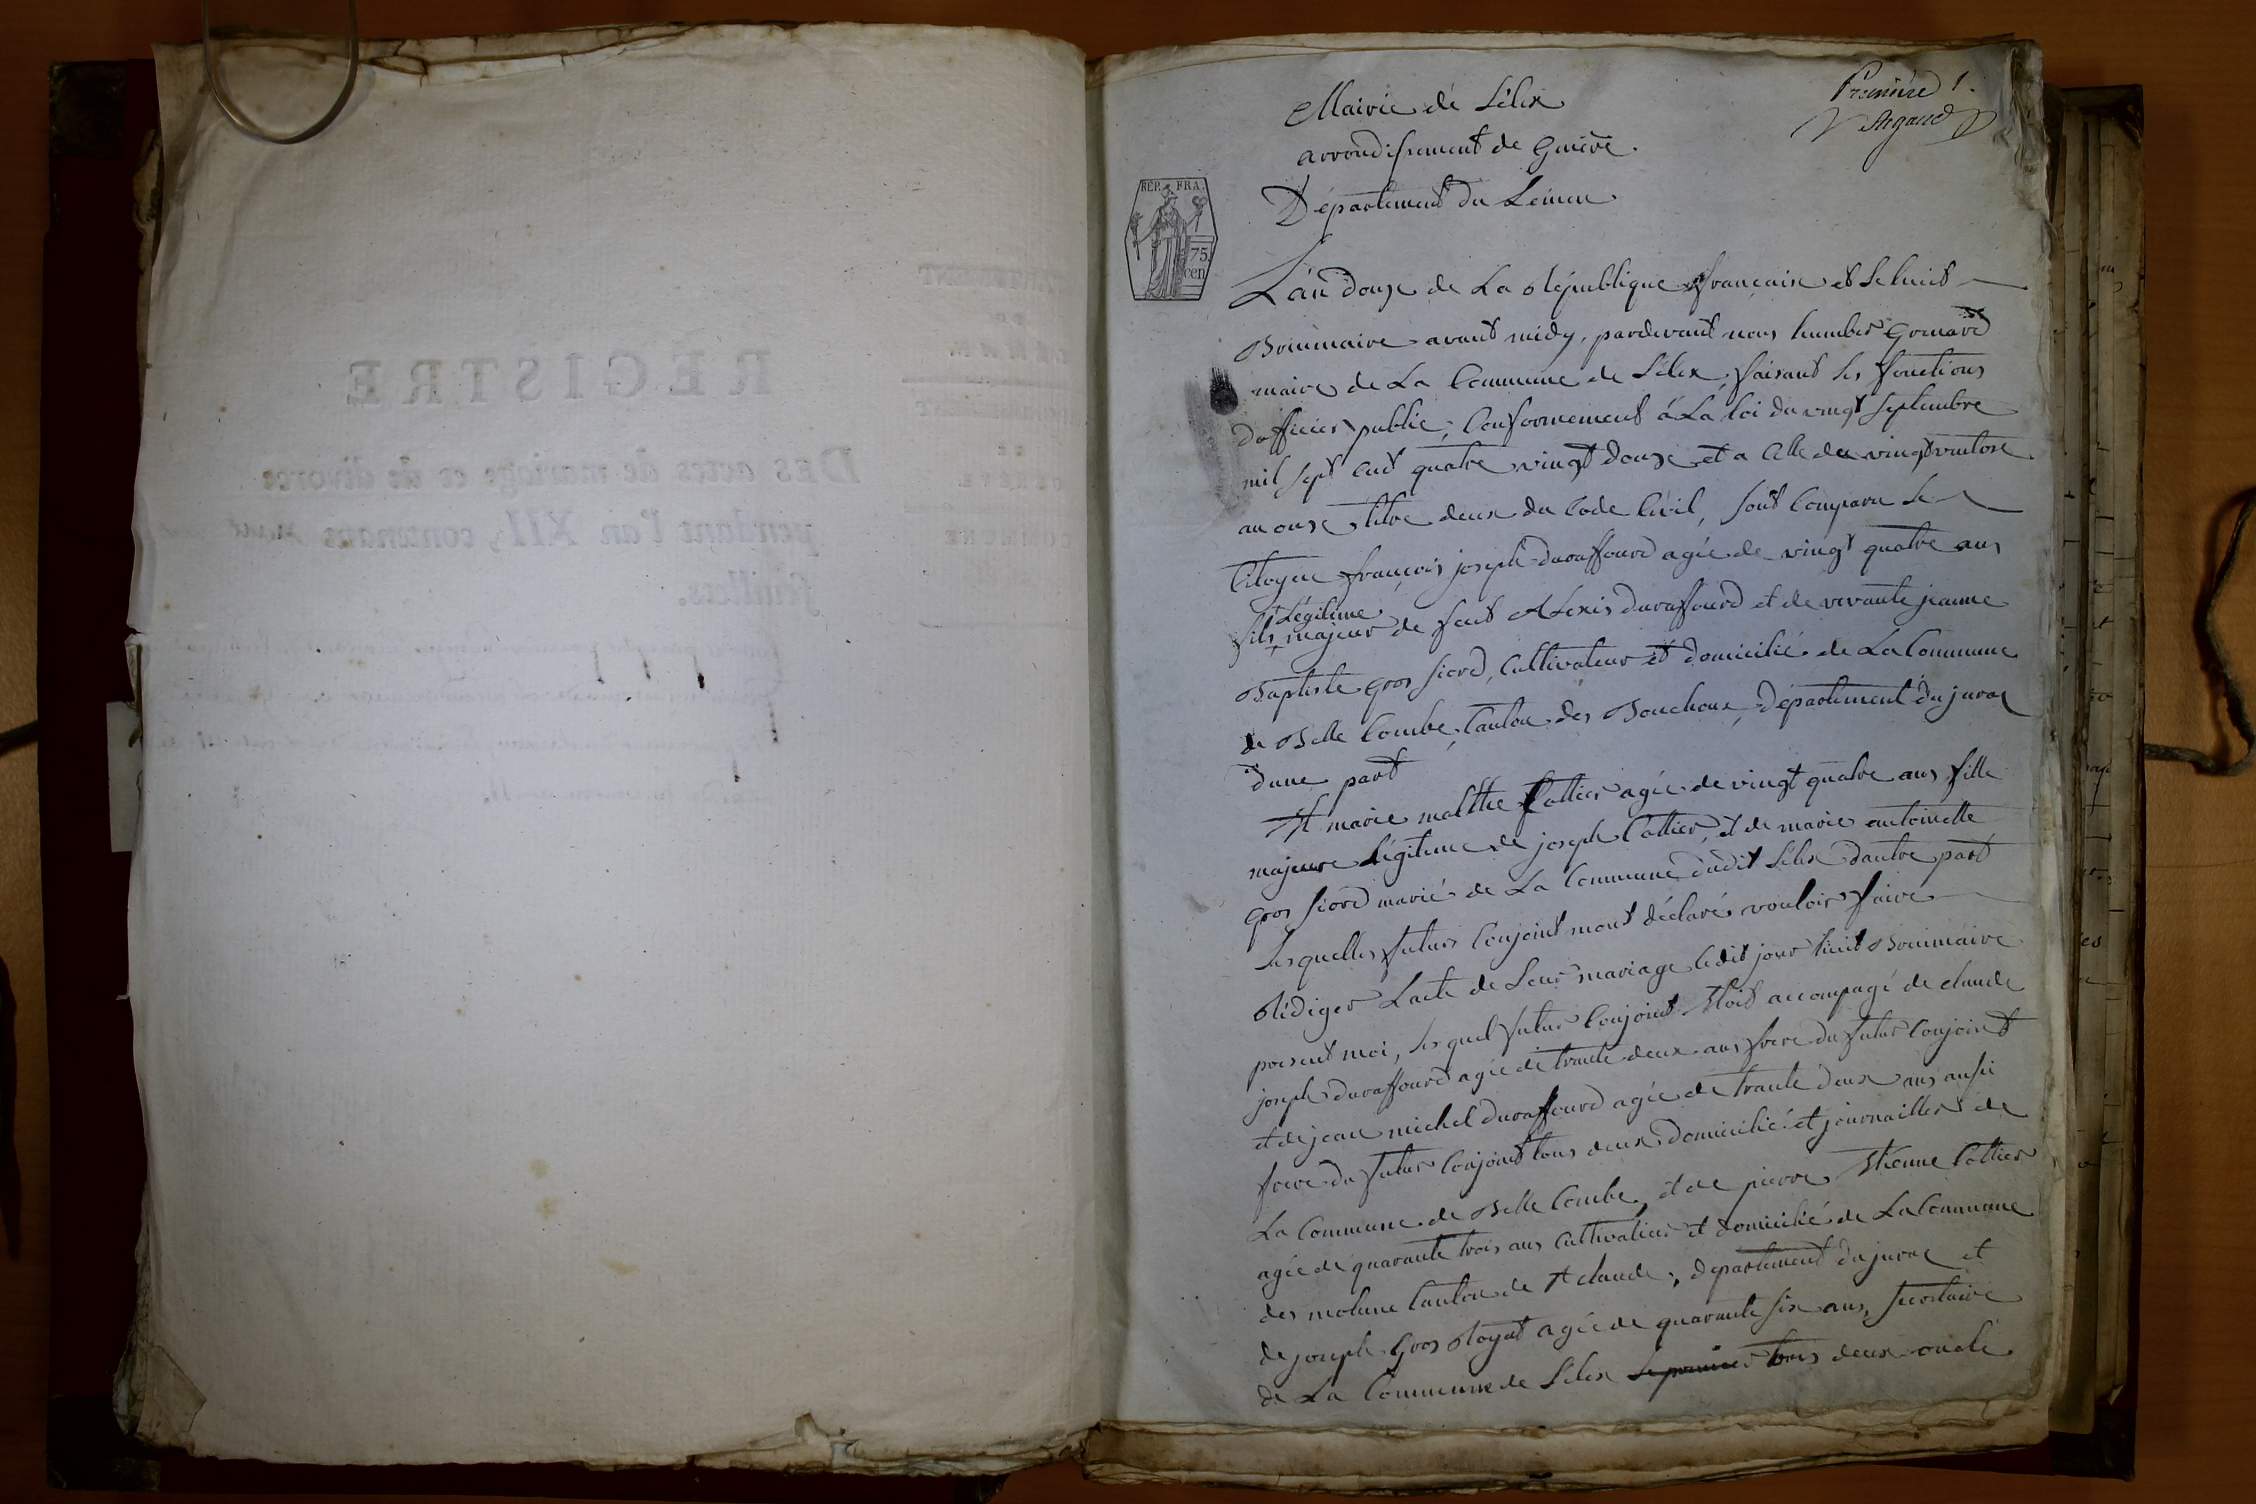 REGISTRE
DES actes de mariage et de divorce
pendant l'an XII, contenant
feuillets.
Première 1.
Argaud
Mairie de Lélex
arrondissement de Genève.
Département du Léman
REP. FRA.
75
cen
L'an douze de La République française et le huit
Brumaire avant midy, pardevant nous humber Grenard
maire de La Commune de Lélex, faisant les fonctions
dofficier public, Conformement à La loi du vingt septembre
mil sept cent quatre vingt douze et a Celle du vingt ventose
an onze titre deux du Code Civil, sont Comparu le
Citoyen françois joseph duraffourd agée de vingt quatre ans
fils Légitime majeur de feut Alexis duraffourd et de vivante jeanne
Baptiste gros fiord, Cultivateur et domicilié de La Commune
de Belle Combe, Canton des Bouchoux, Département du jura
dune part
Et marie malthe Cottier agée de vingt quatre ans fille
majeure Légitime de joseph Cottier, et de marie antoinette
gros fiord marié de La Commune dudit Lélex dautre part
Lesquelles futurs Conjoint mont déclaré vouloir faire
Rédiger Lacte de Leur mariage Cedit jour huit Brumaire
présent moi, les quel futur Conjoint Etoit accompagé de claude
joseph duraffourd agée de trante deux ans frere du futur Conjoint
et de jean michel duraffourd agée de trante deux ans aussi
frere du futur Conjoint tous deux domicilié et journaillier de
La Commune de Belle Combe, et de pierre Etienne Cottier
agée de quarante trois ans Cultivatieur et domicilié de La Commune
des molune Canton de St claude, département du jura et
de joseph Gros Royat agée de quarante six ans, secretaire
de La Commune de Lelex le premier tous deux oncle